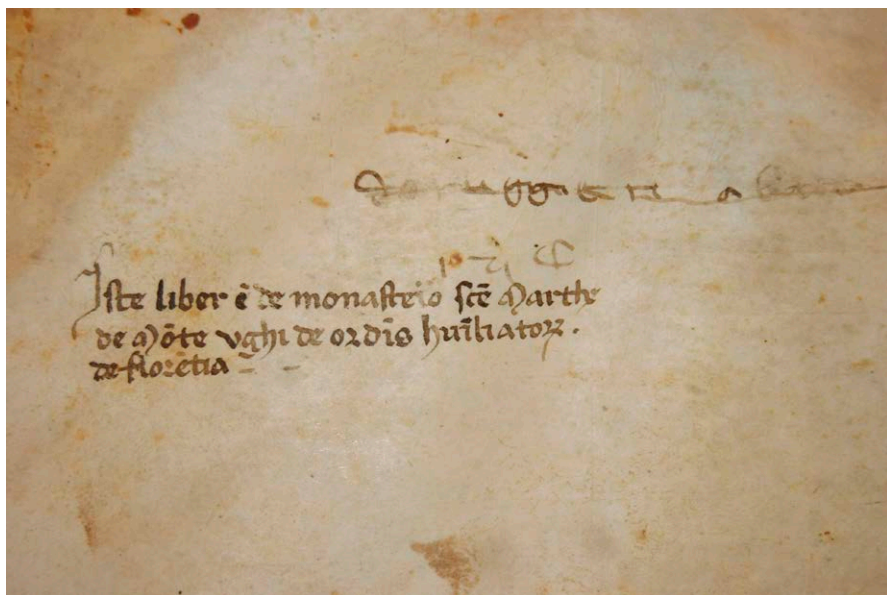 Iste liber ē de monasterio scē Marthe
de Mōte vghi de ordīs huīliatoꝝ.
de florētia